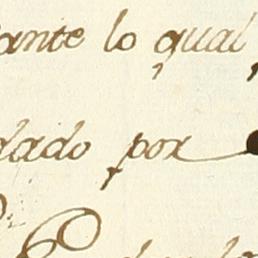 ante lo qual
dado por